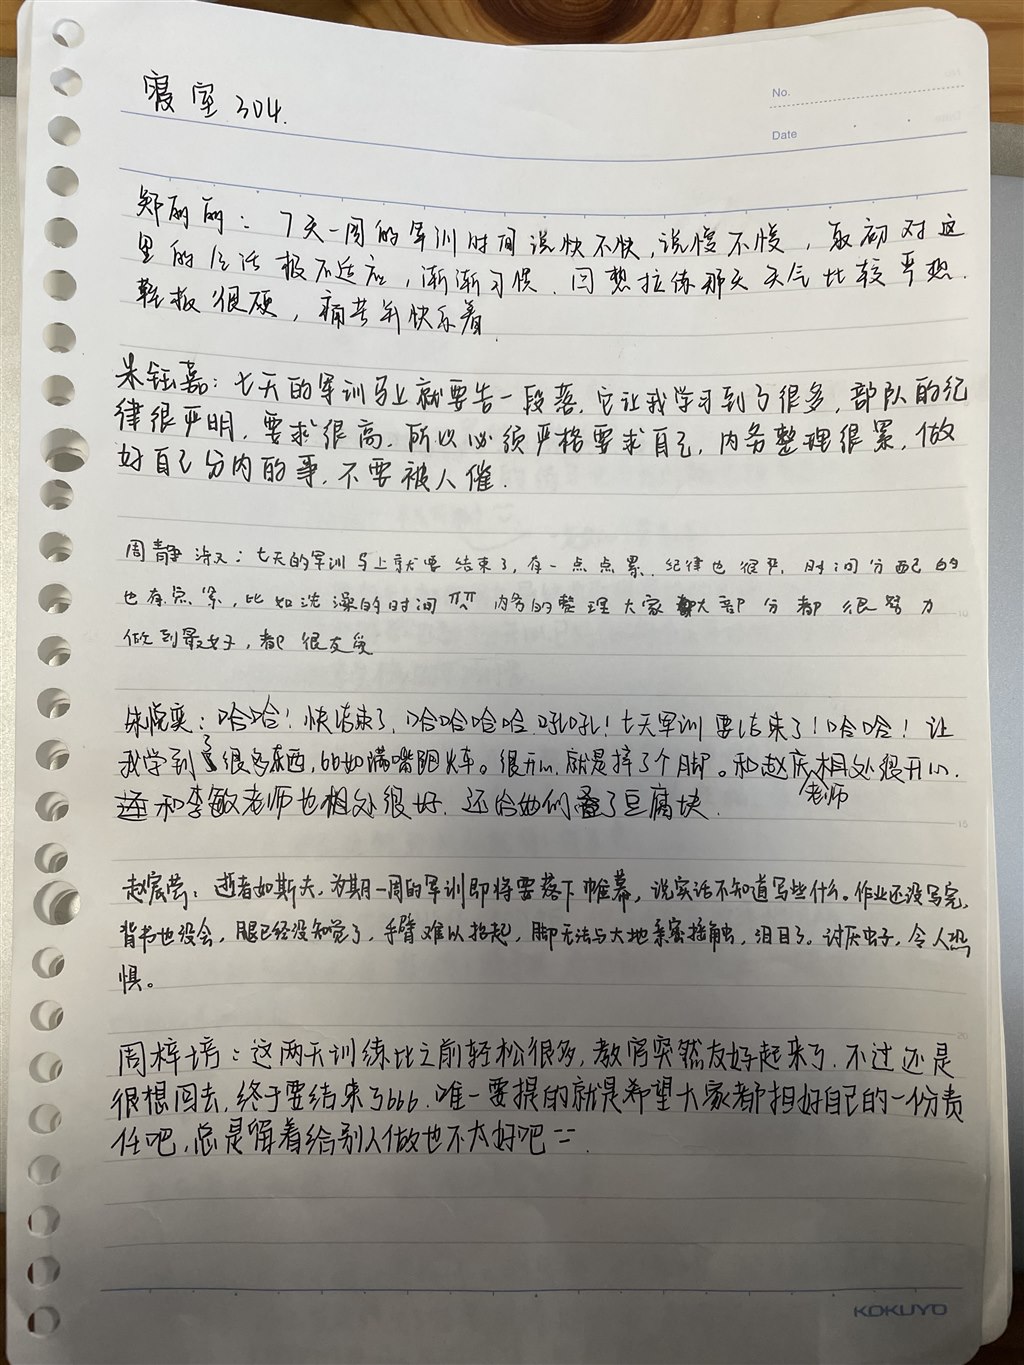 寝室304.
No.
Date
郑丽丽：7天一周的军训时间说快不快，说慢不慢，最初对这
里的生活极不适应，渐渐习惯．回想拉练那天天气比较严热．
鞋板很硬，痛苦并快乐着
朱钰嘉：七天的军训马上就要告一段落．它让我学习到了很多，部队的纪
律很严明，要求很高．所以必须严格要求自己，内务整理很累，做
好自己分内的事，不要被人催．
周静淑：七天的军训马上就要结束了，有一点点累．纪律也很严，时间分配的
也有点紧，比如洗澡的时间 内务的整理大家大部分都很努力
做到最好，都很友爱
朱悦奕：哈哈！快结束了，哈哈哈哈 吼吼！七天军训要结束了！哈哈！让
我学到了很多东西，比如满嘴跑火车。很开心，就是捽了个脚。和赵庆老师相处很开心．
和李敏老师也相处很好．还给她们叠了豆腐块．
赵宸莹：逝者如斯夫，为期一周的军训即将要落下帷幕，说实话不知道写些什么。作业还没写完，
背书也没会，腿已经没知觉了，手臂难以抬起，脚无法与大地亲密接触，泪目了。讨厌虫子，令人恐
惧。
周梓培：这两天训练比之前轻松很多，教官突然友好起来了．不过还是
很想回去，终于要结束了666．唯一要提的就是希望大家都担好自己的一份责
任吧，总是留着给别人做也不太好吧==
KOKUYO